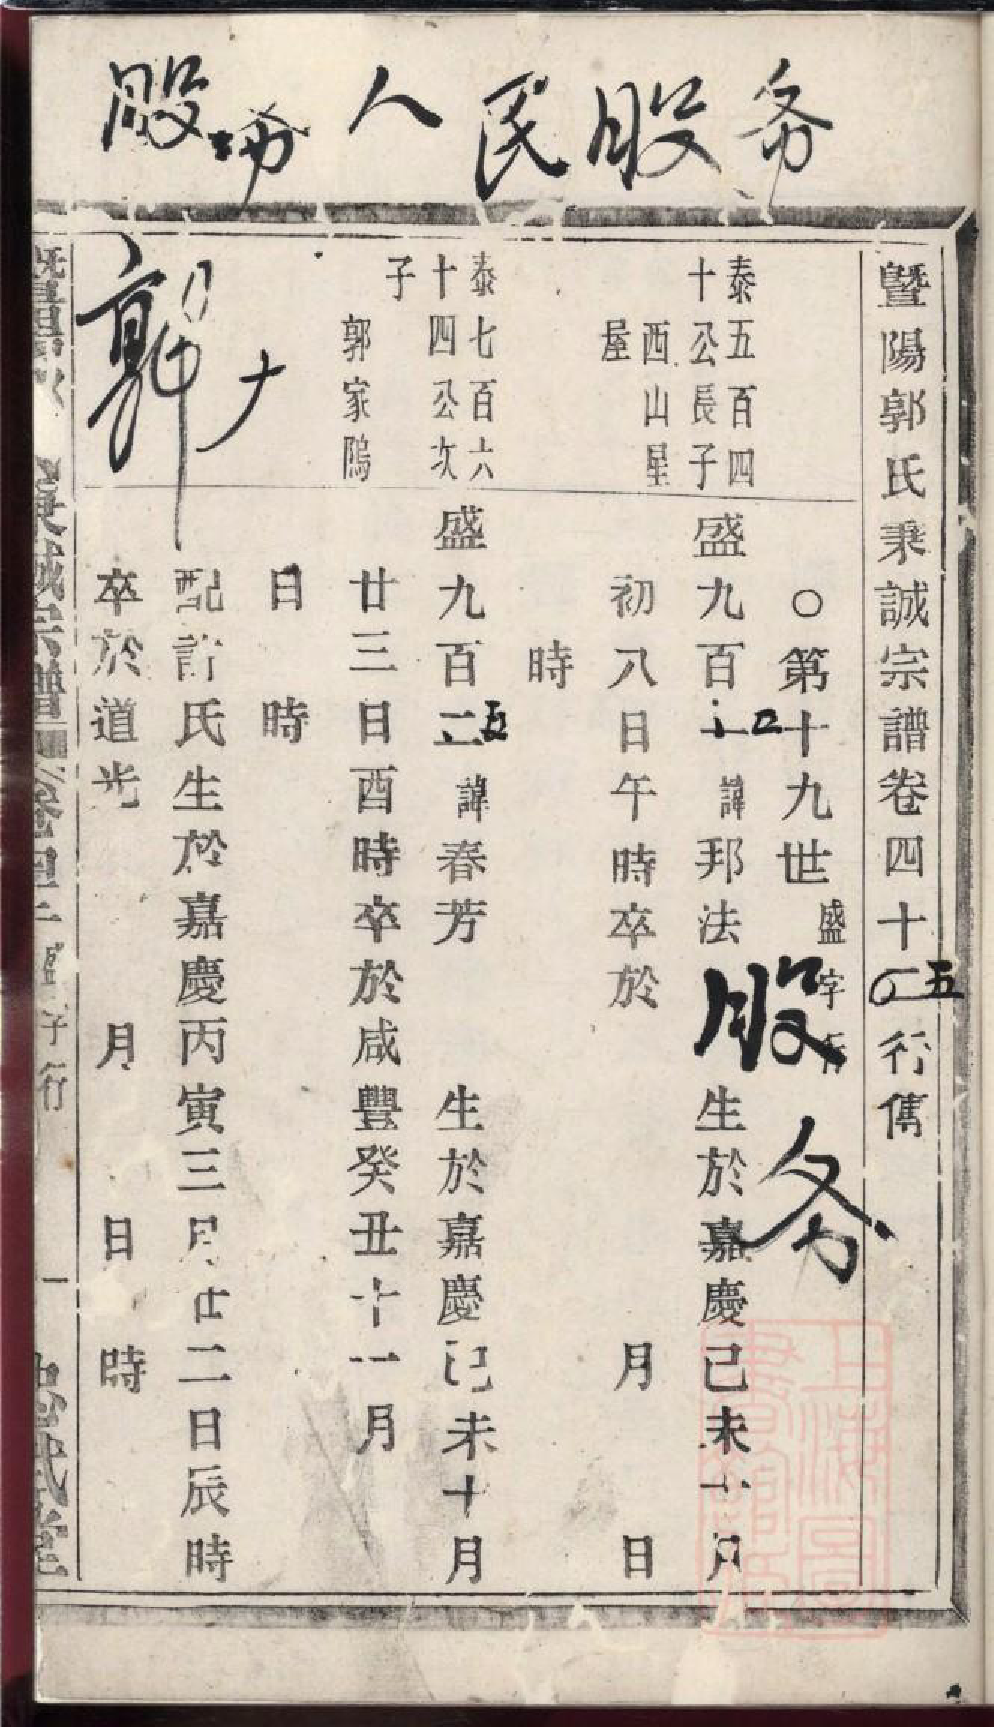 股务人民股务
暨陽郭氏秉誠宗譜卷四十五行傳
○第十九世
盛字行
股务
泰五百四
十公長子
西山星
屋
盛九百 諱邦法 生於嘉慶己未十月
初八日午時卒於 月 日
時
泰七百六
十四公次
子
郭家隖
盛九百二五諱春芳 生於嘉慶己未十月
廿三日酉時卒於咸豐癸丑十一月
日 時
郭
配許氏生於嘉慶丙寅三月廿二日辰時
卒於道光 月 日 時
秉誠宗譜 卷四十 盛字行 一